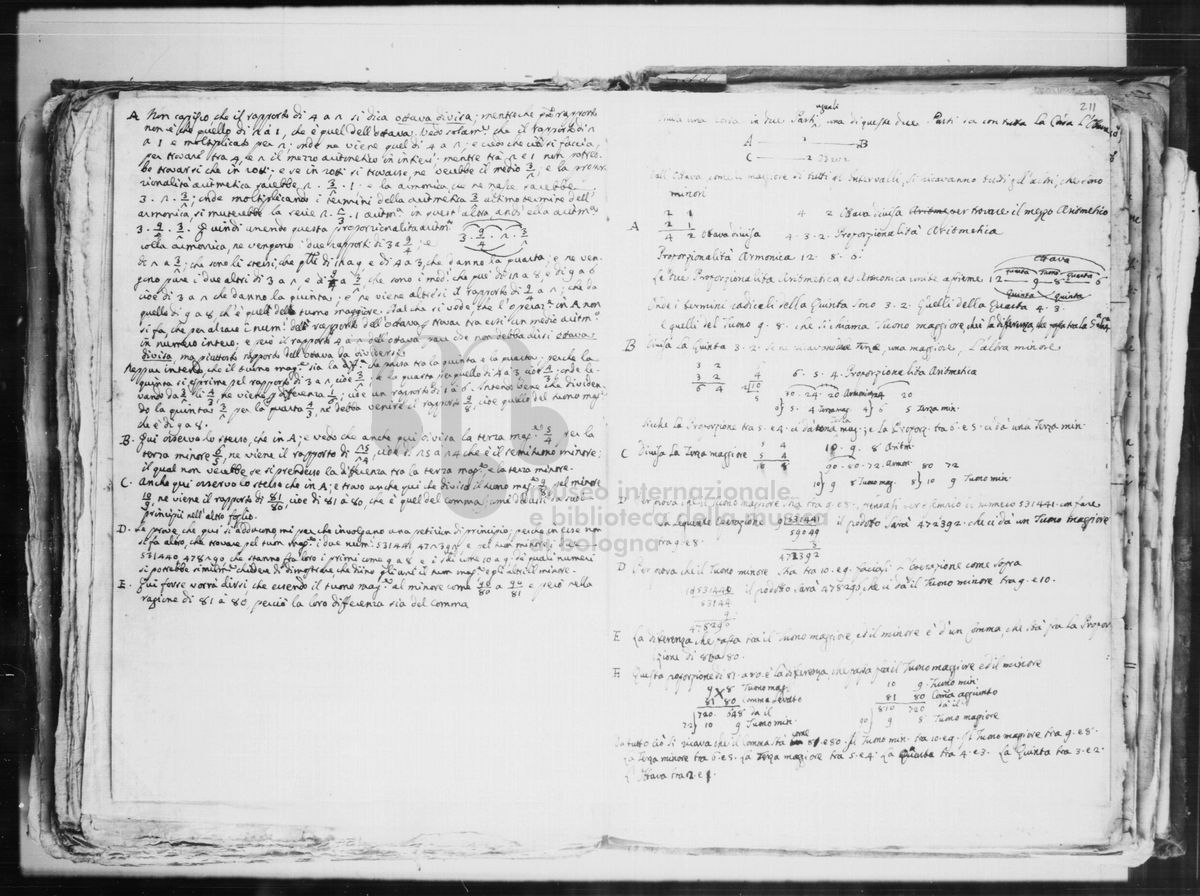 A Non capisco che il rapporto di 4 a 2 si dica ottava divisa; mentre che rapporto
non è che quello di 2 a 1, che è quel dell'ottava. Vedo che il rapporto di 2
a 1 è moltiplicato per 2; onde ne viene quel di 4 a 2; e credo che ciò si faccia,
per trovare tra 4, e 2 il mezzo aritmetico in intieri; mentre tra 2 e 1 non
trovarsi che in rotti: e se in rotti si trovasse, ne verebbe il medio 3/2, e la
zionalità aritmetica sarebbe 2 . 3/2 . 1 . e la armonica, che ne nasce sarebbe
3 . 2 . 3/2; onde moltiplicando i termini della aritmetica ultimo termine dell'
armonica, si muterebbe la serie 2 . 3/2 . 1 in quest'altra,
3 . 9/4 . 3/2 . Quindi unendo questa proporzionalità
colla armonica, ne vengono i due rapporti di 3 a 9/4, e 3 . 9/4 . 2 . 3/2
di 2 a 3/2; che sono li stessi, che di 12 a 9 e di 4 a 3, che danno la quarta; e ne ven-
gono pure i due altri di 3 a 2 e di 9/4 a 3/2; che sono i
cioè di 3 a 2 che danno la quinta; e ne viene altresì il rapporto di 9/4 a 2; che dà
quello di 9 a 8, ch'è quel del tuono maggiore. Dal che si vede, che l'operaz. in A non
si fa, che per alzare i numeri del rapporto dell'ottava, e trovar tra essi un medio
in numero intero, e però il rapporto 4 a 2 dell'ottava pare che non debba dirsi ottava
divisa, ma piuttosto rapporto dell'ottava da dividersi.
Neppur intendo che il tuono sia la che passa tra la quinta e la quarta, perchè la
quinta si esprime pel rapporto di 3 a 2, cioè 3/2; e la quarta per quello di 4 a 3 cioè 4/3; onde
la quinta 3/2 per la quarta 4/3, ne debba venire il rapporto 9/8, cioè quello del tuono
che è di 9 a 8.
B. Qui osservo lo stesso, che in A; e vedo che anche qui divisa la terza mag. 5/4, per la
terza minore 6/5, ne viene il rapporto di 25/24, cioè di 25 a 24 che è il semituono minore;
il qual non verebbe se si prendesse la differenza tra la terza mag. e la terza minore.
C. Anche qui osservo lo stesso che in A; e trovo anche qui che diviso il tuono mag. 9/8 pel minore
10/9, ne viene il rapporto di 81/80, cioè di 81 a 80, che è quel del comma; come
principii nell'altro foglio.
D. Le prove, che qui si adducono mi par che involgano una petizion di principio; perchè, in esse non
si fa altro, che trovare pel tuon mag. i due numeri 531441, 472392 e pel tuon minore i due
531440, 478296 che stanno fra loro i primi come 9 a 8 e i come 10 a 9; dei quali numeri
si potrebbe chiedere di dimostrare che diano gli uni il tuon mag. e gli altri il minore.
E. Qui forse vorrà dirsi, che essendo il tuono mag. al minore come 90/80 a 90/81, e però nella
ragione di 81 a 80, perciò la loro differenza sia del comma
211
uguali
una Corda in due Parti, una di queste due Parti sa con tutta La Corda L'Ottava
A 1 B
C 2
Ottava, come la maggiore di tutti gl'Intervalli, si ricavano tutti gl'altri, che sono
minori
2 1 4 2 Ottava divisa per trovare il mezzo Aritmetico
A 2 1
4 2 Ottava divisa 4 . 3 . 2 . Proporzionalità Aritmetica
Proporzionalità Armonica 12 . 8 . 6 .
Ottava
Le due Proporzionalità Aritmetica ed Armonica unite assieme 12 9 8 6
Quarta Tuono Quarta
Quinta Quinta
Onde i termini radicali della Quinta sono 3 . 2 . Quelli della Quarta 4 . 3 .
e quelli del Tuono 9 . 8 . che si chiama Tuono maggiore, la differenza, che passa tra la
B Divisa La Quinta 3 . 2 . due Terze, una maggiore, L'altra minore
3 2
3 2 4 6 . 5 . 4 . Proporzionalità Aritmetica
6 4 2|10
5 30 . 24 . 20 Armonica 24 20
6) 5 . 4 Terza mag. 4) 6 5 Terza min.
Sicchè La Proporzione tra 5 . e 4 . ci dà la terza mag.; e La Proporz. tra 6 . e 5 . ci dà una Terza min.
C Divisa La Terza maggiore 5 4 10 . 9 . 8 Aritm.
5 4
10 8 90 . 80 . 72 . Armon. 80 72
10) 9 8 Tuono mag. 8) 10 9 Tuono min.
D Prova che il Tuono maggiore stia tra 9 . e 8 . prendasi per esempio il numero 531441 . con fare
La seguente Operazione 9|531441 il prodotto sarà 472392 . che ci dà un Tuono maggiore
tra 9 . e 8 . 59049
8
472392
D Prova che il Tuono minore stia tra 10 . e 9 . facciasi Operazione come sopra
10|531440 il prodotto sarà 478296 che ci dà il Tuono minore tra 9 . e 10 .
53144
9
478296
E La differenza che passa tra il Tuono maggiore ed il minore è d'un Comma, che stà fra La Propor-
zione di 81 a 80 .
E Questa proporzione di 81 . a 80 . è la differenza che passa fra il Tuono maggiore ed il minore
9 8 Tuono mag. 10 9 . Tuono min.
81 80 Comma levato 81 80 Coma aggiunto
720 . 648 dà il 810 720 dà il
72) 10 9 Tuono min. 90) 9 8 Tuono maggiore
Da tutto ciò si ricava che il Comma stà come 81 . e 80 . Il Tuono min. tra 10 . e 9 . Il Tuono maggiore tra 9 . e 8 .
La Terza minore tra 6 . e 5 . La Terza maggiore tra 5 . e 4 . La Quarta tra 4 . e 3 . La Quinta tra 3 . e 2 .
L'Ottava tra 2 . e 1 .
museo internazionale
e biblioteca della musica
di bologna